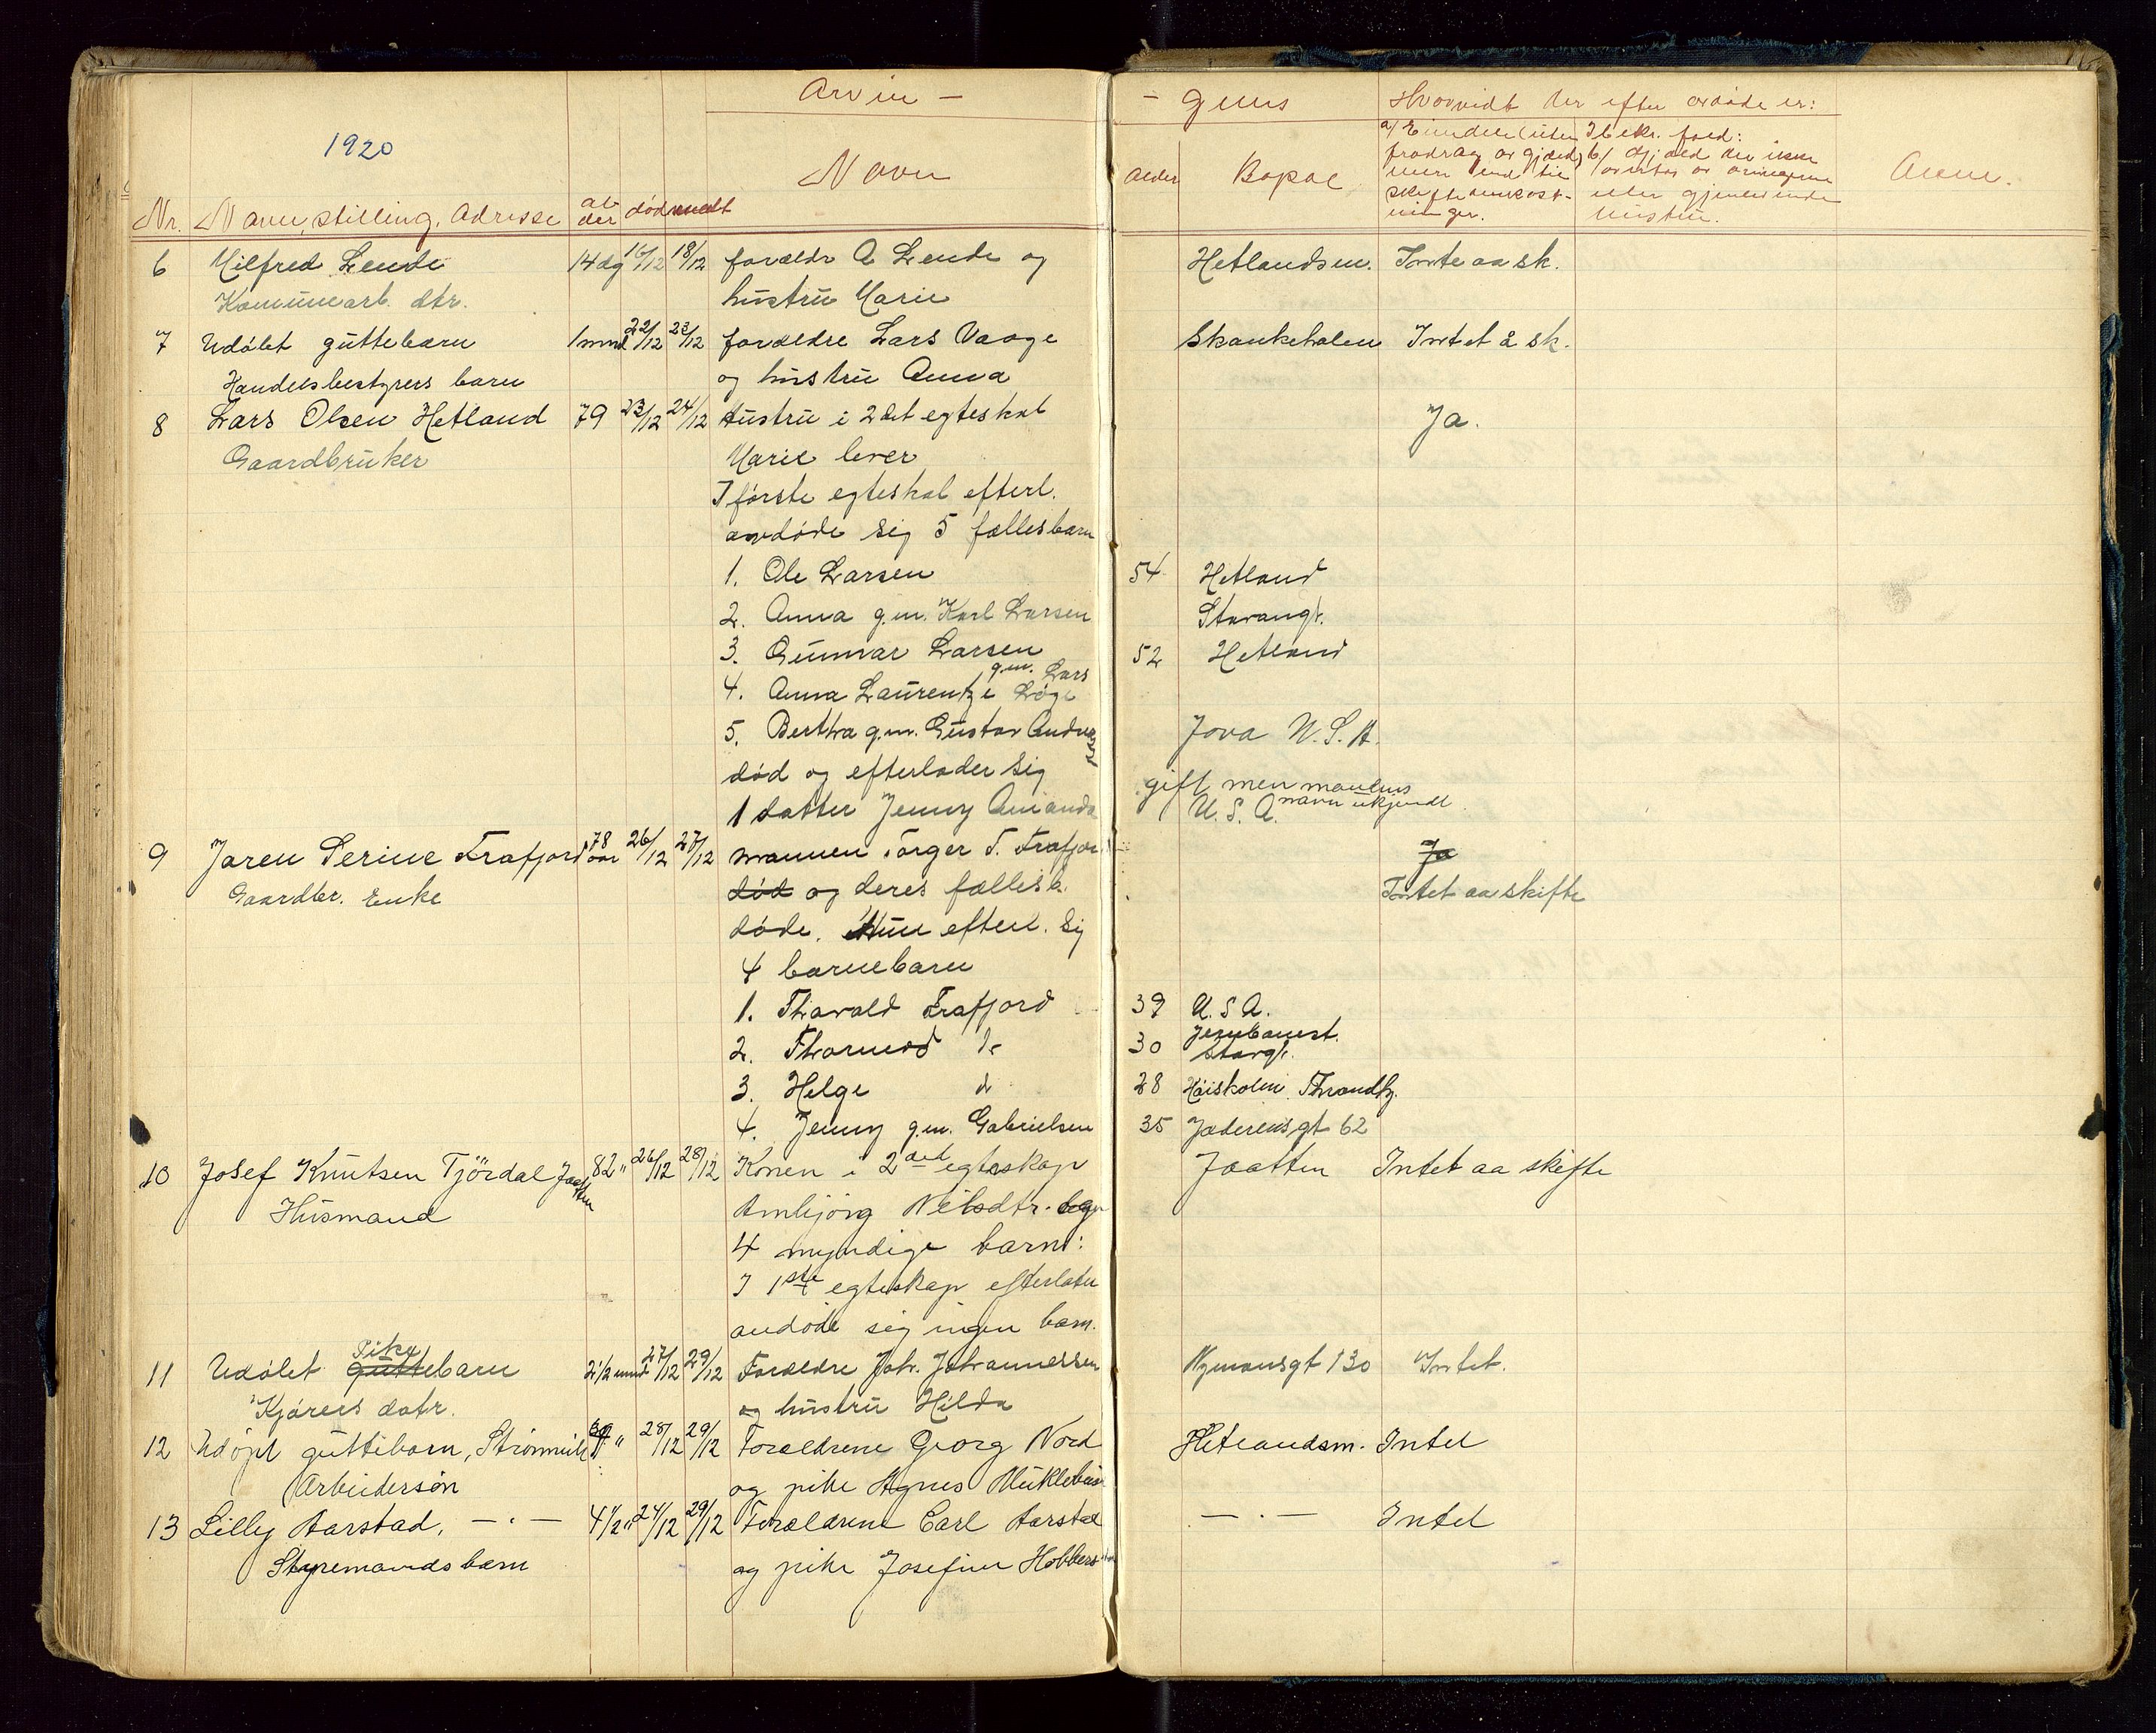 Arvin - - gens
1920
Hvorvidt der efter avdøde er:
Nr. Navn, stilling, Adresse al der død meldt Navn Alder Bopæl
a/ Eiendele (uten fradrag av gjæld) mer end til skifteomkostninger.
I bekr. fald: b/ Gjæld der ikke overtas av arvingerne eller gjenlevende hustru.
Anm.
6 Milfred Lende 14 dg 16/12 18/12 forældr A Lende og Hetlandsm. Intet aa sk.
Komunearb. dtr. hustru Marie
7 Udøbt guttebarn 1 mnd 22/12 23/12 forældre Lars Vaage Skankeholen Intet å sk.
Handelsbestyrers barn og hustru Anna
8 Lars Olsen Hetland 79 23/12 24/12 Hustru i 2det egteskab Ja.
Gaardbruker Marie lever
I første egteskab efterl.
avdøde sig 5 fællesbarn
1. Ole Larsen 54 Hetland
2. Anna g.m. Karl Larsen Stavangr.
3. Gunnar Larsen 52 Hetland
4. Anna Laurentze g.m. Lars Løge
5. Bertha g.m. Gustav Andreas Jova U.S.A.
død og efterlader sig gift men mandens
1 datter Jenny Amanda U.S.A. navn ukjendt
9 Jaren Serine Frafjord 78 aar 26/12 27/12 mannen Torger T. Frafjor Ja
Gaardbr. Enke død og deres fællesb. Intet aa skifte
døde. Hun efterl. sig
4 barnebarn
1. Thorvald Frafjord 39 U.S.A.
2. Thormod do 30 Jernbanest. Stavgr.
3. Helge do 28 Høiskolen Throndhj.
4. Jenny g.m. Gabrielsen 35 Jæderensgt 62
10 Josef Knutsen Tjördal Jaatten 82 " 26/12 28/12 Konen i 2det egteskap Jaatten Intet aa skifte
Husmand Ambjörg Nilsdtr. og
4 myndige barn:
I 1ste egteskap efterlater
avdöde sig ingen barn.
11 Udøbt Pike guttebarn 2 1/2 mnd 27/12 29/12 Forældre Joh. Johannessen Nymansgt 130 Intet.
Kjørers datr. og hustru Hilda
12 Udöpt guttebarn, " 28/12 29/12 Forældrene Georg Nord Hetlandsm. Intet
Arbeidersön og pike Agnes
13 Lilly Aarstad, - " - 4 1/2 " 24/12 29/12 Forældrene Carl Aarstad - " - Intet
Styremandsbarn og pike Josefine